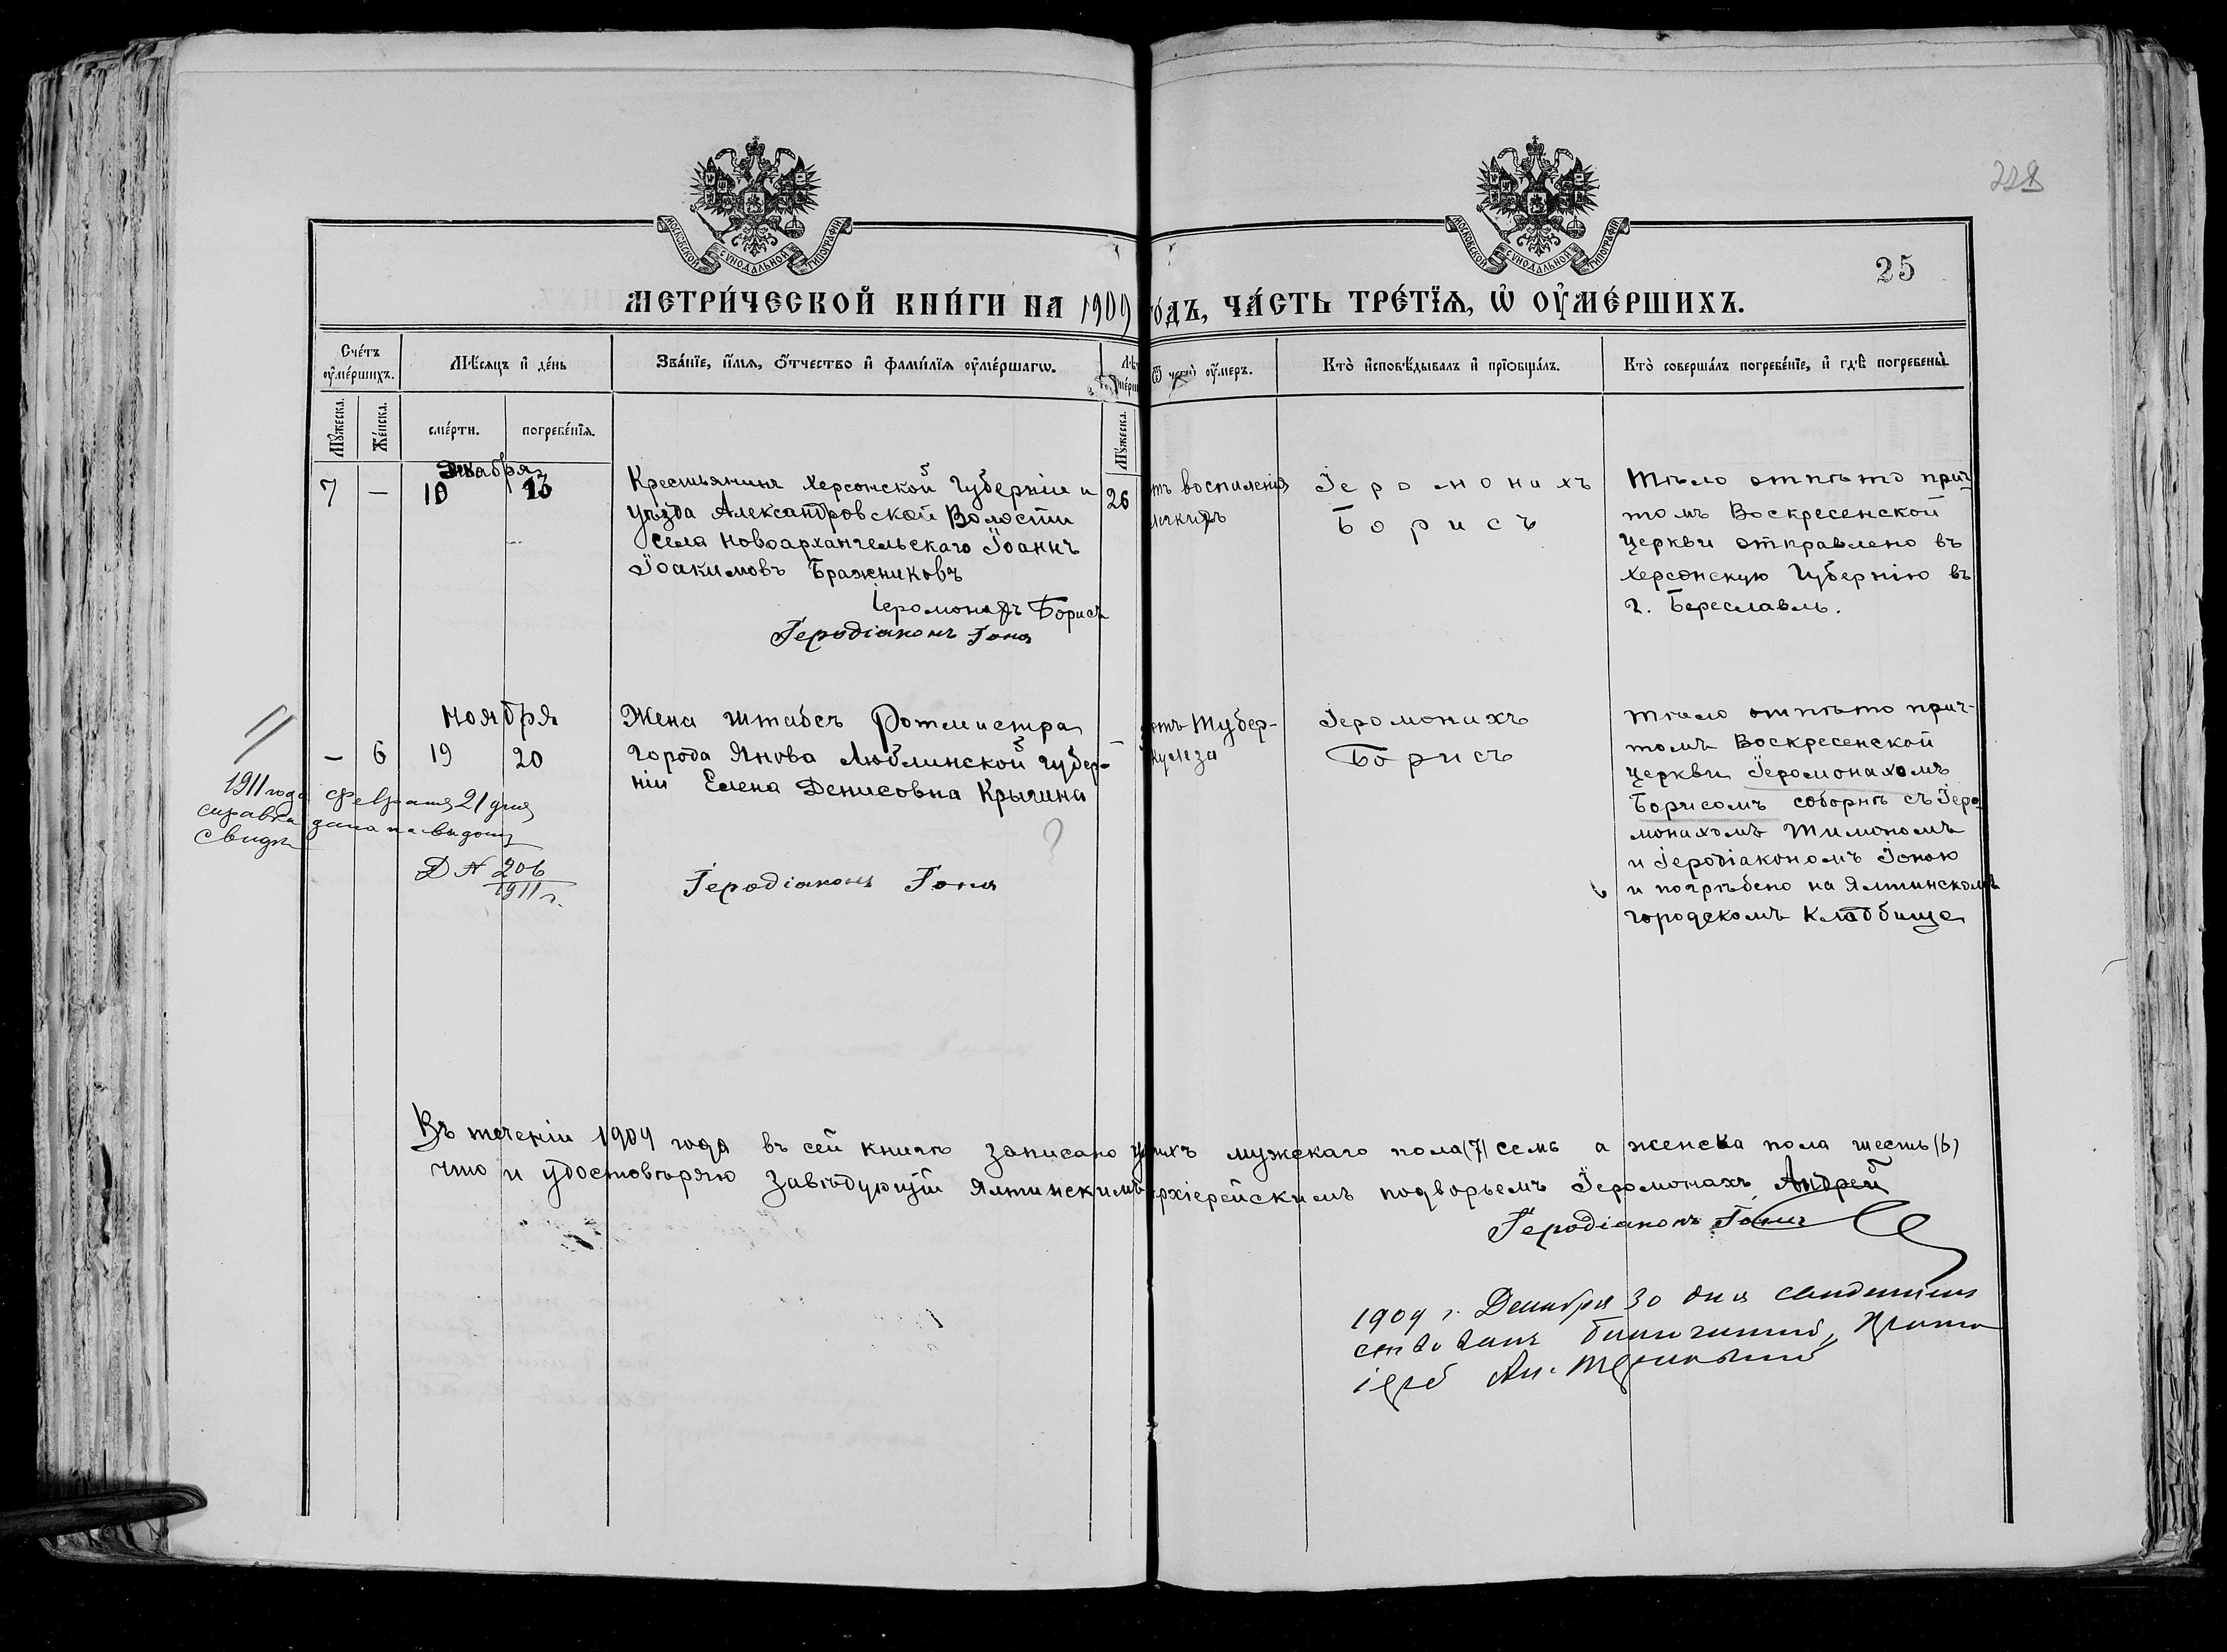 228
МОСКОВСКОЙ СѴНОДАЛЬНОЙ ТИПОГРАФІИ
МОСКОВСКОЙ СѴНОДАЛЬНОЙ ТИПОГРАФІИ
25
МЕТРИ́ЧЕСКОЙ КНИ́ГИ НА 1909 го́дъ, ЧА́СТЬ ТРЕ́ТЇѦ, Ѡ҆ ОУ҆МЕ́РШИХЪ.
Сче́тъ оу҆ме́ршихъ.
Мѣ́сяцъ и҆ де́нь
Зва́нїе, и҆́мя, ѻ҆́тчество и҆ фами́лїя оу҆ме́ршагѡ.
Ѿ чегѡ̀ оу҆́меръ.
Кто̀ и҆сповѣ́дывалъ и҆ прїѻбща́лъ.
Кто̀ соверша́лъ погребе́нїе, и҆ гдѣ̀ погребены̀
Мꙋ́жеска.
Же́нска.
сме́рти.
погребе́нїя.
Мꙋ́жеска.
Декабря
7 — 10 13
Крестьянинъ Херсонской Губерніи и
уѣзда Александровской Волости
села Новоархангельскаго Іоаннъ
Іоакимовъ Бражниковъ
Іеромонахъ Борисъ
Іеродіаконъ Іона
26
отъ воспаленія
легкихъ
Іеромонахъ
Борисъ
Тѣло отпѣто прич-
томъ Воскресенской
церкви отправлено въ
Херсонскую Губернію въ
г. Береславль.
Ноября
— 6 19 20
Жена штабсъ Ротмистра
города Янова Люблинской губер-
ніи Елена Денисовна Крычина
?
Іеродіаконъ Іона
—
отъ Тубер-
кулеза
Іеромонахъ
Борисъ
Тѣло отпѣто прич-
томъ Воскресенской
церкви Іеромонахомъ
Борисомъ соборнѣ съ Іеро-
монахомъ Тимономъ
и Іеродіакономъ Іоною
и погрѣбено на Ялтинскомъ
городскомъ Кладбище
1911 года Февраля 21 дня
справка дана на выдачу
Свид
Д № 206
1911 г.
Въ теченіи 1909 года въ сей книгѣ записано ум-ихъ мужскаго пола (7) семь а женска пола шесть (6)
что и удостовѣряю Завѣдующій Ялтинскимъ Архіерейскимъ подворьемъ Іеромонахъ Андрей
Іеродіаконъ Іона
1909 г. Декабря 30 дня свидетель
ствовалъ благочинный, Прото
іерей Ан. Терновскій